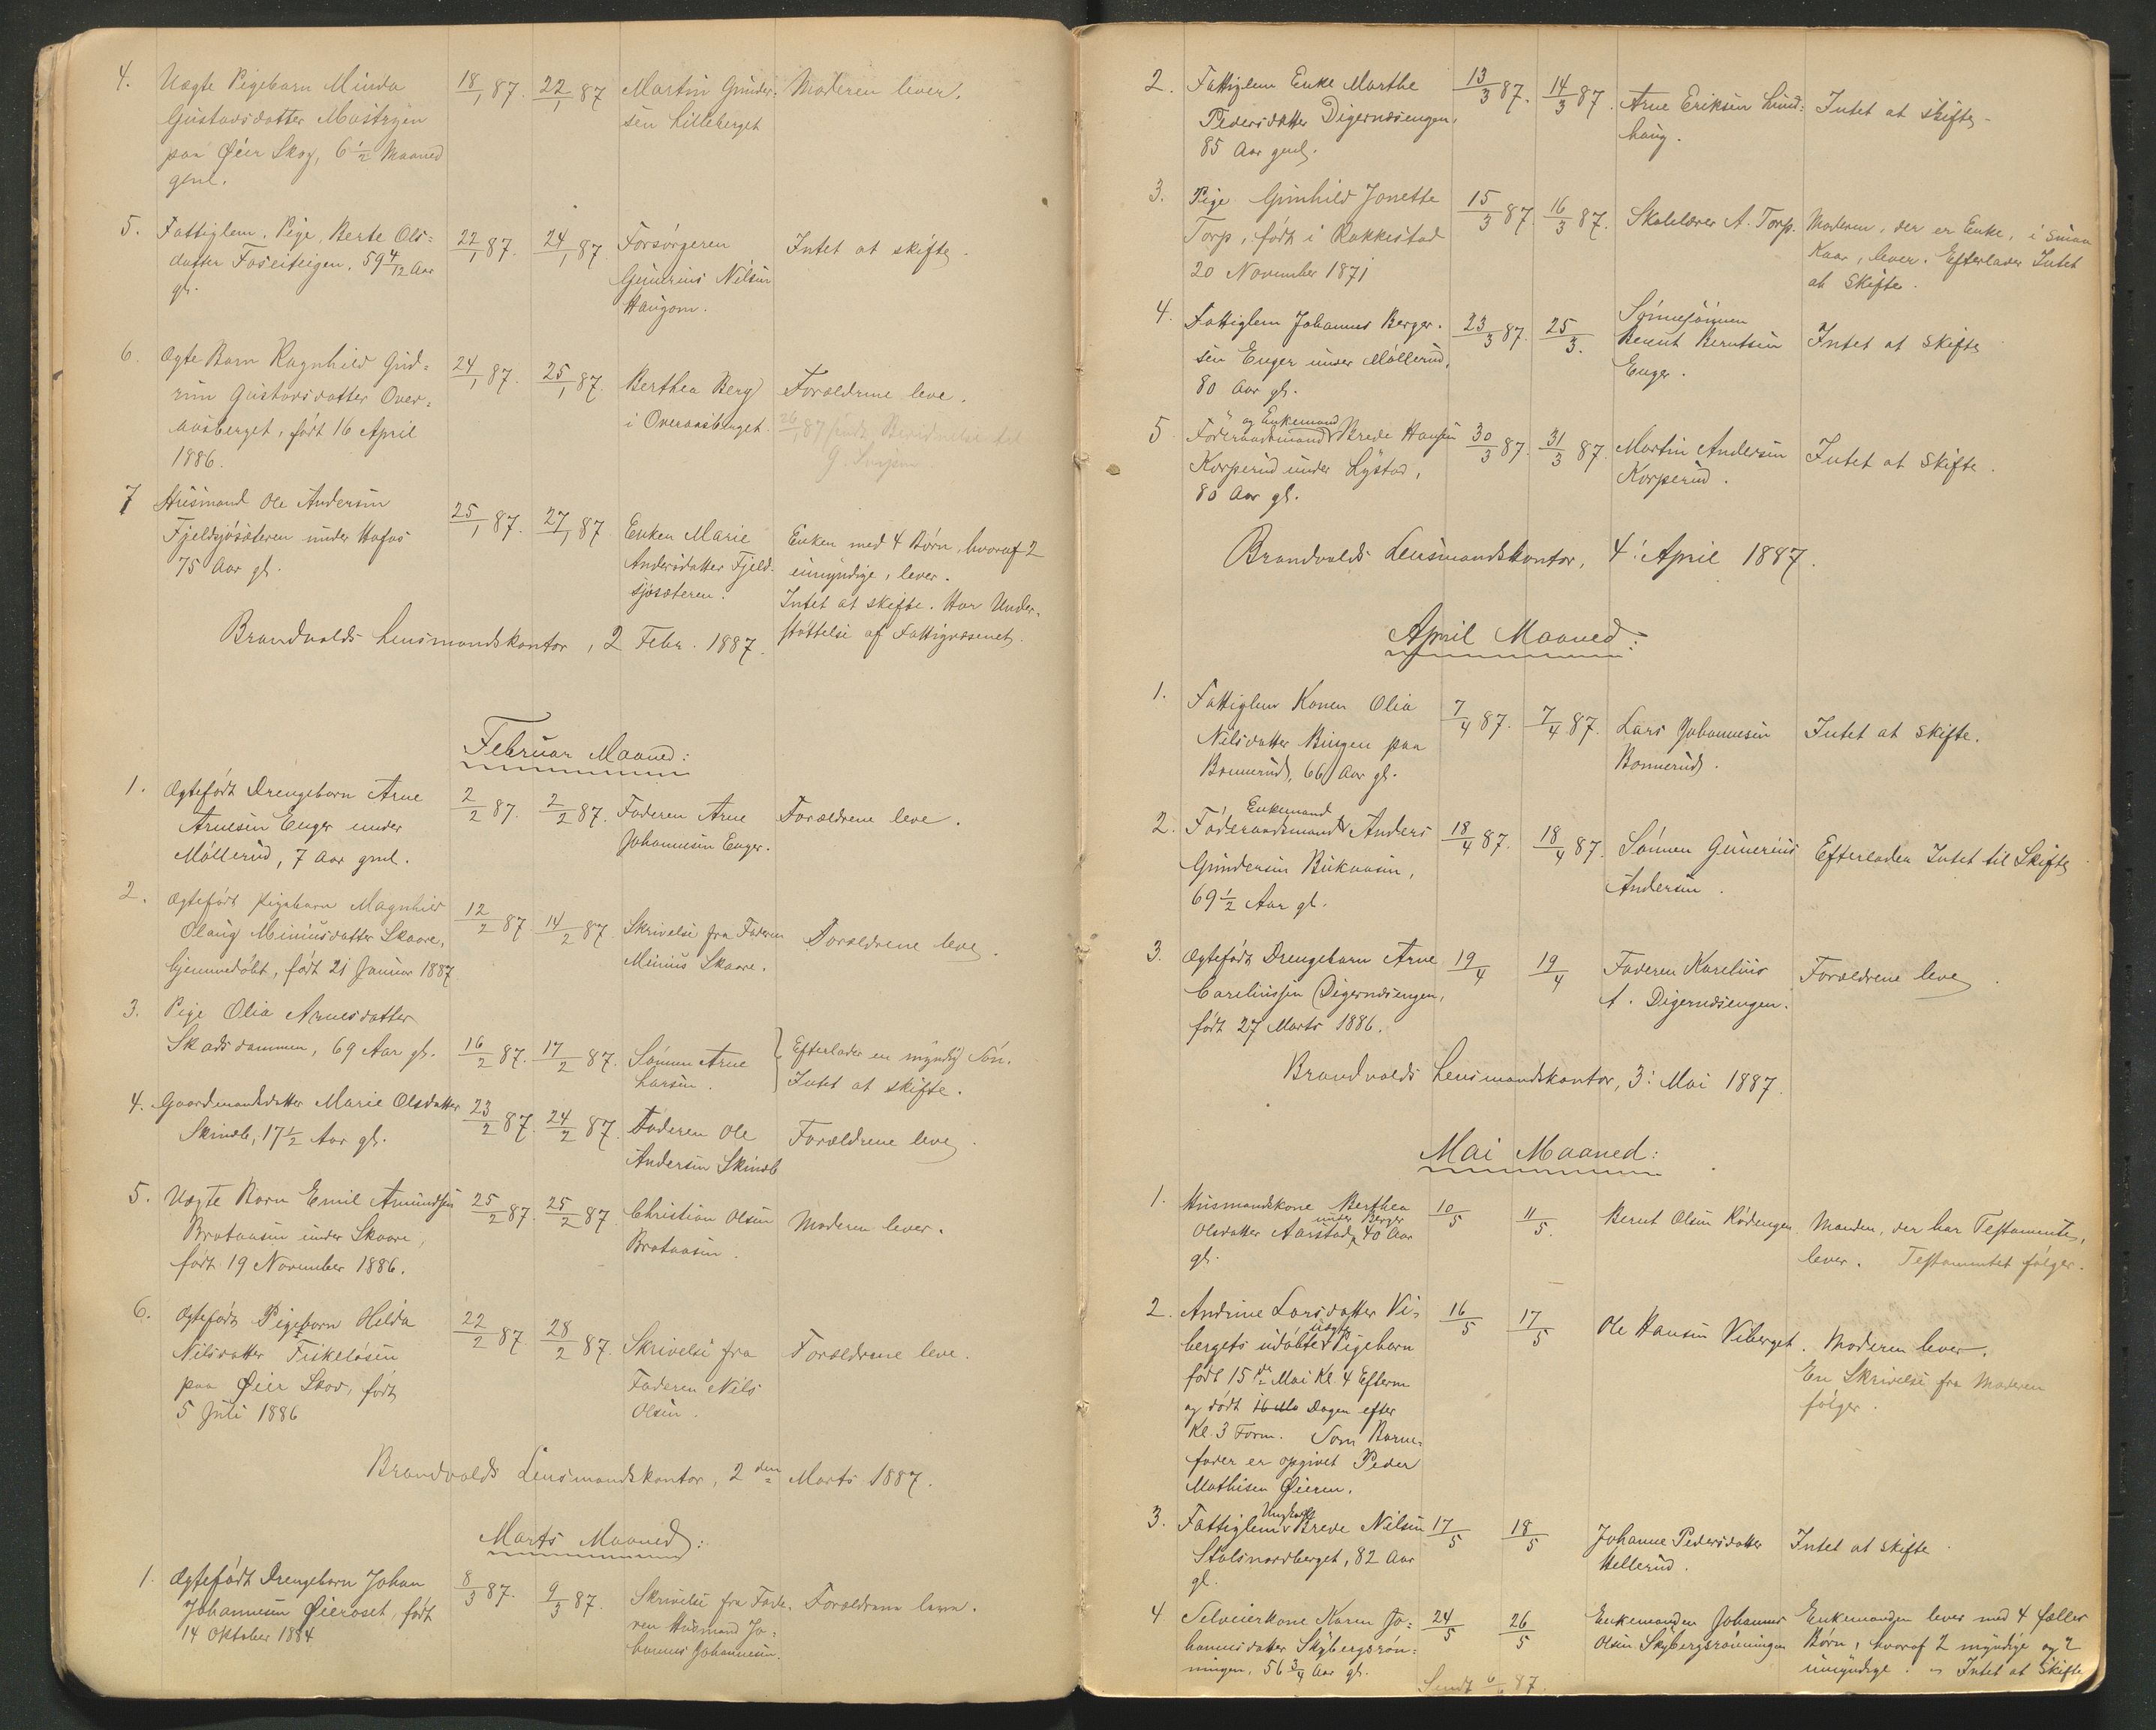 4. Uægte Pigebarn Minda
Gustavsdatter Mastryen
paa Øier Skog, 6 1/2 Maaned
gml.
18/1 87. 22/1 87
Martin Gunder-
sen Lilleberget
Moderen lever.
5. Fattiglem. Pige, Berte Ols=
datter Foseiteigen, 59 4/12 Aar
gl.
22/1 87. 24/1 87
Forsørgeren
Gunerius Nilsen
Haugom.
Intet at skifte.
6. Ægte Barn Ragnhild Gud=
run Gustavsdatter Over=
aasberget, født 16 April
1886.
24/1 87. 25/1 87.
Berthea Berg
i Overaasberget.
Forældrene leve.
26/1 87 sendt
7 Husmand Ole Andersen
Fjeldsjøsæteren under Hofos
75 Aar gl.
25/1 87. 27/1 87
Enken Marie
Andersdatter Fjeld-
sjøsæteren.
Enken med 4 Børn, hvoraf 2
umyndige, lever.
Intet at skifte. Har Under-
støttelse af Fattigvæsenet.
Brandvolds Lensmandskontor, 2 Febr. 1887.
Februar Maaned:
1. Ægtefødt Drengebarn Arne
Arnesen Enger under
Møllerud, 7 Aar gml.
2/2 87. 2/2 87.
Faderen Arne
Johannesen Enger.
Forældrene leve.
2. Ægtefødt Pigebarn Magnhild
Olaug Miniusdatter Skaare,
hjemmedøbt, født 21 Januar 1887
12/2 87 14/2 87
Skrivelse fra Faderen
Minius Skaare.
Forældrene leve.
3. Pige Olia Arnesdatter
Skadsdammen, 69 Aar gl.
16/2 87. 17/2 87.
Sønnen Arne
Larsen.
Efterlader en myndig Søn.
Intet at skifte.
4. Gaardmandsdatter Marie Olsdatter
Skinæb, 17 1/2 Aar gl.
23/2 87. 24/2 87.
Faderen Ole
Andersen Skinæb
Forældrene leve.
5. Uægte Barn Emil Amundsen
Brataasen under Skaare,
født 19 November 1886.
25/2 87. 25/2 87.
Christian Olsen
Brataasen.
Moderen lever.
6. Ægtefødt Pigebarn Hilda
Nilsdatter Fiskeløsen
paa Øier Skov, født
5 Juli 1886
22/2 87. 28/2 87.
Skrivelse fra
Faderen Nils
Olsen.
Forældrene leve.
Brandvolds Lensmandskontor, 2den Marts 1887.
Marts Maaned:
1. Ægtefødt Drengebarn Johan
Johannesen Øieroset, født
14 Oktober 1884
8/3 87. 9/3 87.
Skrivelse fra Fade-
ren Husmand Jo-
hannes Johannesen.
Forældrene leve.
2. Fattiglem Enke Marthe
Pedersdatter Digernæsengen,
85 Aar gml.
13/3 87. 14/3 87.
Arne Eriksen Lund=
haug.
Intet at skifte.
3. Pige Gunhild Jonette
Torp, født i Rakkestad
20 November 1871
15/3 87. 16/3 87.
Skolelærer A. Torp.
Moderen, der er Enke, i smaa
Kaar, lever. Efterlader Intet
at Skifte.
4. Fattiglem Johannes Berger-
sen Enger under Møllerud,
80 Aar gl.
23/3 87. 25/3.
Sønnesønnen
Bernt Berntsen
Enger.
Intet at skifte
5 Føderaadsmand og Enkemand Brede Hansen
Korperud under Lystad,
80 Aar gl.
30/3 87. 31/3 87.
Martin Andersen
Korperud.
Intet at skifte.
Brandvolds Lensmandskontor, 4: April 1887.
April Maaned:
1. Fattiglem Konen Olia
Nilsdatter Bingen paa
Bonnerud, 66 Aar gl.
7/4 87. 7/4 87.
Lars Johannesen
Bonnerud.
Intet at skifte.
2. Føderaadsmand Enkemand Anders
Gundersen Bukaasen,
69 1/2 Aar gl.
18/4 87. 18/4 87.
Sønnen Gunerius
Andersen.
Efterlader Intet til Skifte.
3. Ægtefødt Drengebarn Arne
Careliussen Digernæsengen,
født 27 Marts 1886.
19/4 19/4
Faderen Karelius
A. Digernæsengen.
Forældrene leve.
Brandvolds Lensmandskontor, 3: Mai 1887.
Mai Maaned:
1. Husmandskone Berthea
Olsdatter Aarstad under Berger 40 Aar
gl.
10/5 11/5.
Bernt Olsen Rødengen
Manden, der har Testamente,
lever. Testamentet følger.
2. Andrine Larsdatter Vi-
bergets udøbte uægte Pigebarn
født 15de Mai Kl. 4 Efterm
og født 16 Ma Dagen efter
Kl. 3 Form. Som Barne-
fader er opgivet Peder
Mathisen Øieren.
16/5 17/5
Ole Hansen Viberget.
Moderen lever.
En Skrivelse fra Moderen
følger.
3. Fattiglem Ungkarl Brede Nilsen
Stolsnordberget, 82 Aar
gl.
17/5 18/5
Johanne Pedersdatter
Hellerud.
Intet at skifte.
4. Selveierkone Karen Jo=
hannesdatter Skybergsrøn=
ningen, 56 3/4 Aar gl.
24/5 26/5
Enkemanden Johannes
Olsen Skybergsrønningen
Enkemanden lever med 4 fælles
Børn, hvoraf 2 myndige og 2
umyndige. Intet at Skifte
Sendt 6/6 87.